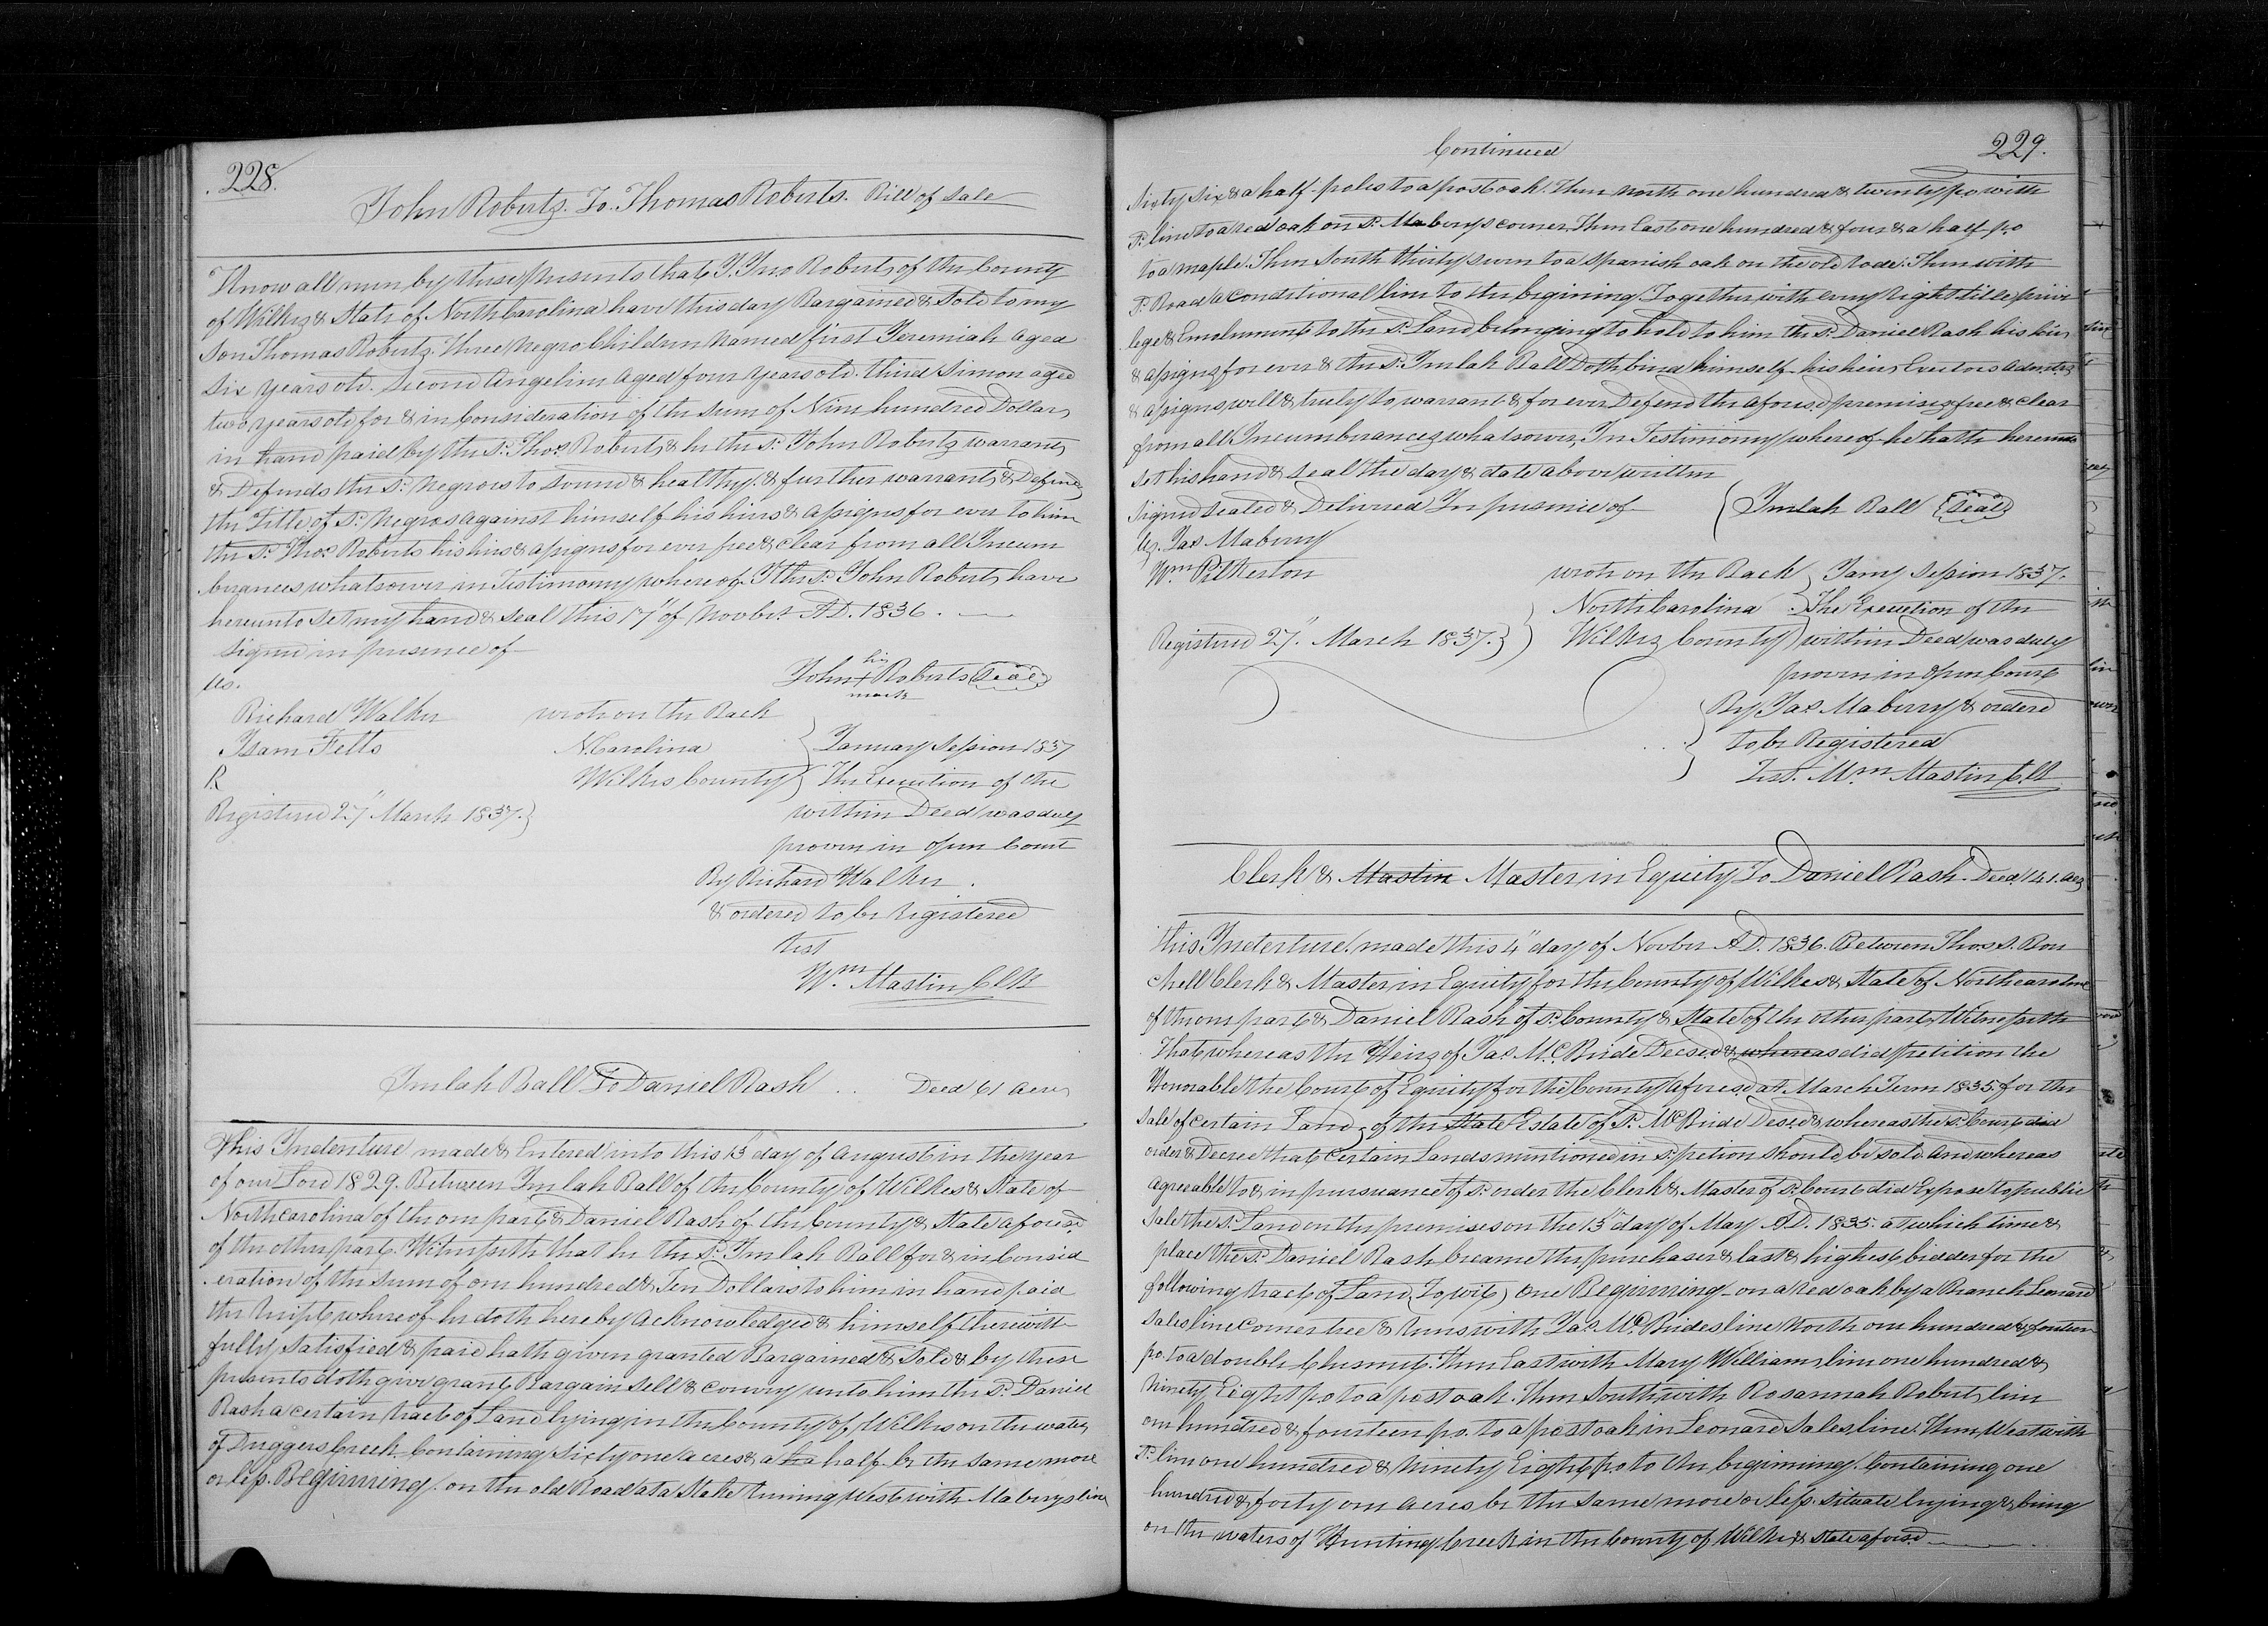 228.
John Roberts. To. Thomas Roberts. Bill of Sale
Know all men by these presents that I. Jno Roberts of the County
of Wilkes & State of North Carolina have this day Bargained & Sold to my
Son Thomas Roberts. Three Negro Children Named first Jeremiah aged
Six years old. Second Angeline aged four years old. third Simon aged
two years old for & in Consideration of the sum of Nine hundred Dollars
in hand paid by the sd. Thos. Roberts & he the sd. John Roberts warrants
& Defends the sd. Negroes to sound & healthy. & further warrants & Defends
the Title of sd. Negros against himself his heirs & assigns for ever to him
the sd. Thos. Roberts his heirs & assigns for ever free & clear from all Incum
berances whatsoever in Testimony where of I the sd. John Roberts have
hereunto set my hand & seal this 17" of Novber. A.D. 1836.
signed in presence of
his
us. John + Roberts (Seal)
mark
Richard Walker wrote on the Back
Isam Felts N. Carolina } January Session 1837
R Wilkes County } The Execution of the
Registered 27" March 1837.} within Deed was duly
proven in open Court
By Richard Walker.
& ordered to be Registered
test
Wm. Mastin Clk
Imlah Ball To Daniel Rash .. Deed 61 acres
This Indenture made & Entered into this 13 day of August in the year
of our Lord 1829. Between Imlah Ball of the County of Wilkes & State of
North carolina of the one part & Daniel Rash of the County & State aforesd.
of the other part. Witnesseth that he the sd. Imlah Ball for & in Consid
eration of the sum of one hundred & Ten Dollars to him in hand paid
the recipt where of he doth here by acknowledged & himself therewith
fully satisfied & paid hath given granted Bargained & Sold & by these
presents doth give grant Bargain sell & convey unto him the sd. Daniel
Rash a certain tract of Land lying in the County of Wilkes on the waters
of Duggers Creek. Containing Sixty one acres & a ha half be the same more
or less. Beginning on the old Road at a Stake runing West with Maberys line
Continued 229.
Sixty six & a half poles to a post oak. Then North one hundred & twenty po. with
sd. line to a red oak on sd. Maberrys corner, Then East one hundred & four & a half po
to a maple. Then South thirty seven to a spanish oak on the old rode. Then with
sd. Road a conditional line to the begining. Together with every right title privi
lege & Emolument to the sd. Land belonging to hold to him the sd. Daniel Rash his heirs
& assigns for ever & the sd. Imlah Ball Doth bind himself his heirs Exectors Admrs
& assigns will & truly to warrant & for ever Defend the aforesd. premises free & clear
from all Incumberances whatsoever, In Testimony where of he hath hereunto
set his hand & seal the day & date above written
Signed sealed & Delivered In presence of { Imlah Ball (Seal)
us. Jas. Maberry
Wm Pilkerton wrote on the Back } Jany Session 1837.
North Carolina } The Execution of the
Registered 27". March 1837.} Wilkes County } within Deed was duly
proven in open Court
By Jas. Maberry & ordered
to be Registered
Test. Wm Mastin Clk
Clerk & Mastin Master in Equity To Daniel Rash. Deed 141. acrs
This Indenture made this 4" day of Novber A.D. 1836. Between Thos. S. Bou
chell Clerk & Master in Equity for the County of Wilkes & State of North carolina
of the one part & Daniel Rash of sd. County & State of the other part, Witnesseth
That whereas the Heirs of Jas. Mc. Bride Decsd. & whereas did petition the
Honorable the Court of Equity for the County aforesd. at March Term 1835. for the
sale of certain Lands of the State Estate of sd. Mc Bride Decsd & whereas the sd. Court did
order & Decree that Certain Lands mintioned in sd. petion should be sold. And whereas
agreeable to & in pursuance of sd. order the Clerk & Master of sd. Court did Expose to public
Sale the sd. Land on the premises on the 13" day of May A.D. 1835. at which time &
place the sd. Daniel Rash became the purchaser & last & highest bidder for the
following tract of Land, To wit, one Beginning on a red oak by a Branch Leonard
Sales line corner tree & runs with Jas. Mc. Brides line North one hundred & fourteen
po. to a double Chesnut. Then East with Mary Williams line one hundred &
Ninety Eight po. to a post oak. Then South with Rosannah Roberts line
one hundred & fourteen po. to a post oak in Leonard Sales line. Then West with
sd. line one hundred & Ninety Eight po to the begining. Containing one
hundred & forty one acres be the same more or less. situate lying & being
on the waters of Hunting Creek in the County of Wilkes & state aforesd.